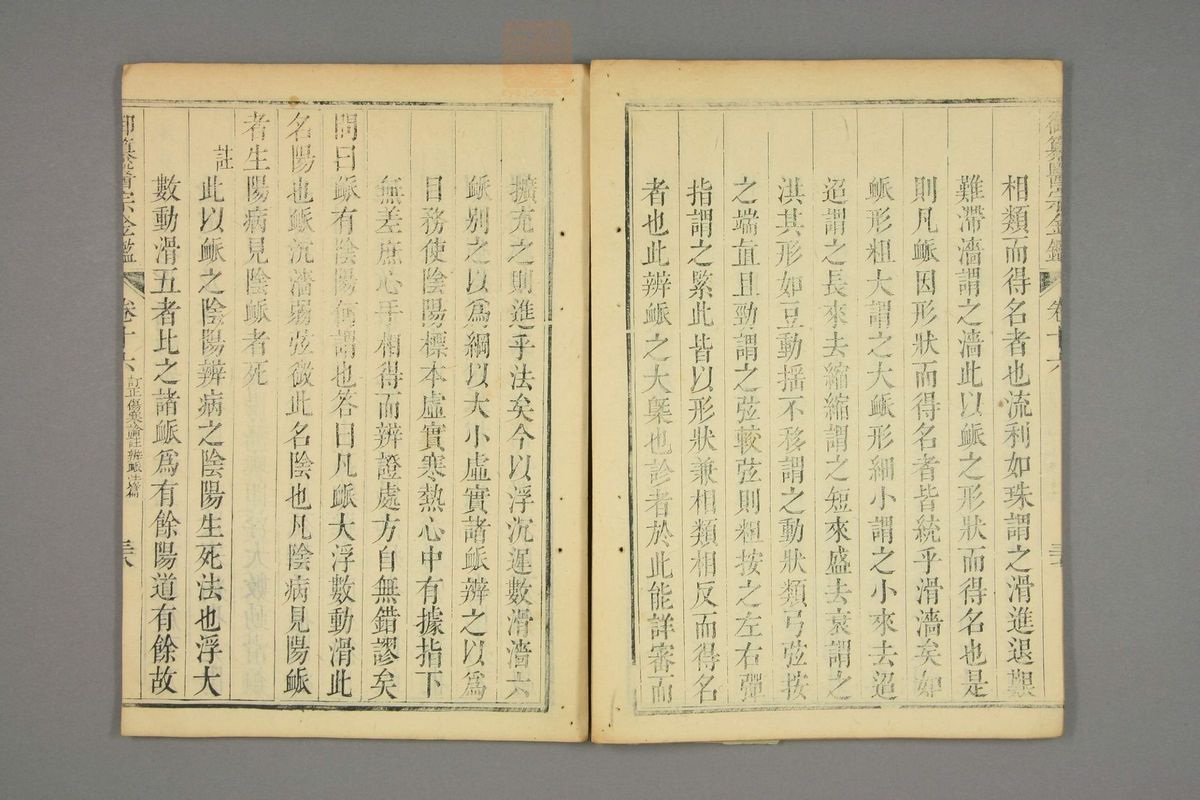 御纂醫宗金鑑 卷十六
相類而得名者也流利如珠謂之滑進退艱
難滯濇謂之濇此以脈之形狀而得名也是
則凡脈因形狀而得名者皆統乎滑濇矣如
脈形粗大謂之大脈形細小謂之小來去迢
迢謂之長來去縮縮謂之短來盛去衰謂之
洪其形如豆動摇不移謂之動狀類弓弦按
之端直且勁謂之弦較弦則粗按之左右彈
指謂之緊此皆以形狀兼相類相反而得名
者也此辨脈之大槩也診者於此能詳審而
擴充之則進乎法矣今以浮沉遲數滑濇六
脈別之以爲綱以大小虛實諸脈辨之以爲
目務使陰陽標本虛實寒熱心中有據指下
無差庶心手相得而辨證處方自無錯謬矣
問曰脈有陰陽何謂也答曰凡脈大浮數動滑此
名陽也脈沉濇弱弦微此名陰也凡陰病見陽脈
者生陽病見陰脈者死
註此以脈之陰陽辨病之陰陽生死法也浮大
數動滑五者比之諸脈爲有餘陽道有餘故
御纂醫宗金鑑 卷十六 訂正傷寒論註辨脈法篇 三八